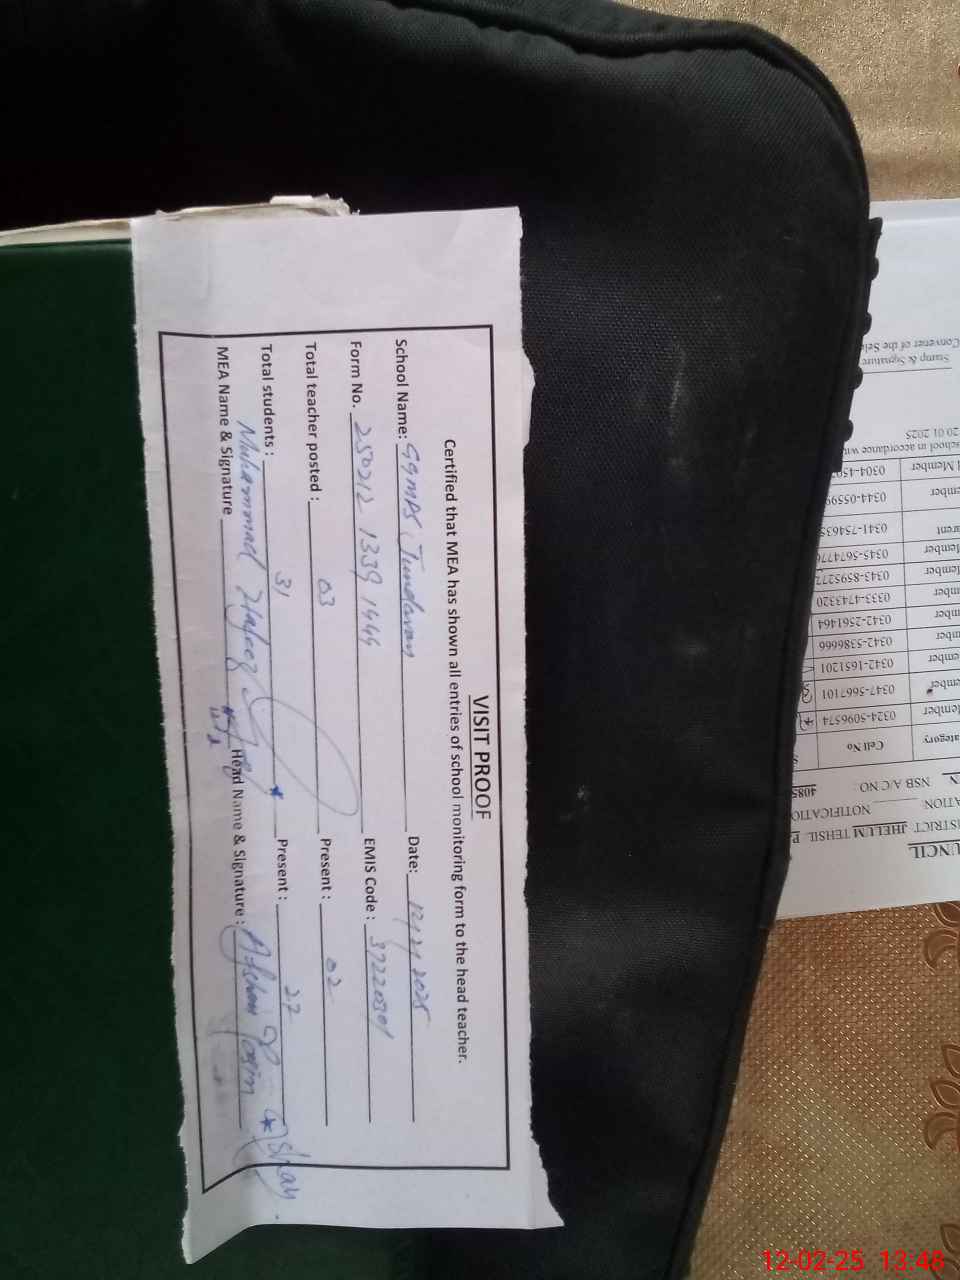 VISIT PROOF
Certified that MEA has shown all entries of school monitoring form to the head teacher.
School Name: GGMPS Jundaran Date: 12/2/2025
Form No. 250212 1339 1444 EMIS Code : 37220301
Total teacher posted : 03 Present : 02
Total students : 31 Present : 27
MEA Name & Signature Muhammad Hafeez Head Name & Signature : Afshan
UNCIL
DISTRICT JHELUM TEHSIL P
ATION: NOTIFICATIO
NSB A/C NO: 4085
ategory Cell No S
ember 0324-5096574
ember 0347-5667101
ember 0342-1651201
ember 0342-5386666
ember 0342-2561464
mber 0333-4743320
ember 0343-8595272
ember 0345-5674776
arent 0341-754635
mber 0344-05599
l Member 0304-450
school in accordance wit
20 01 2025
Stamp & Signature
Convener of the Sele
12-02-25 13:48